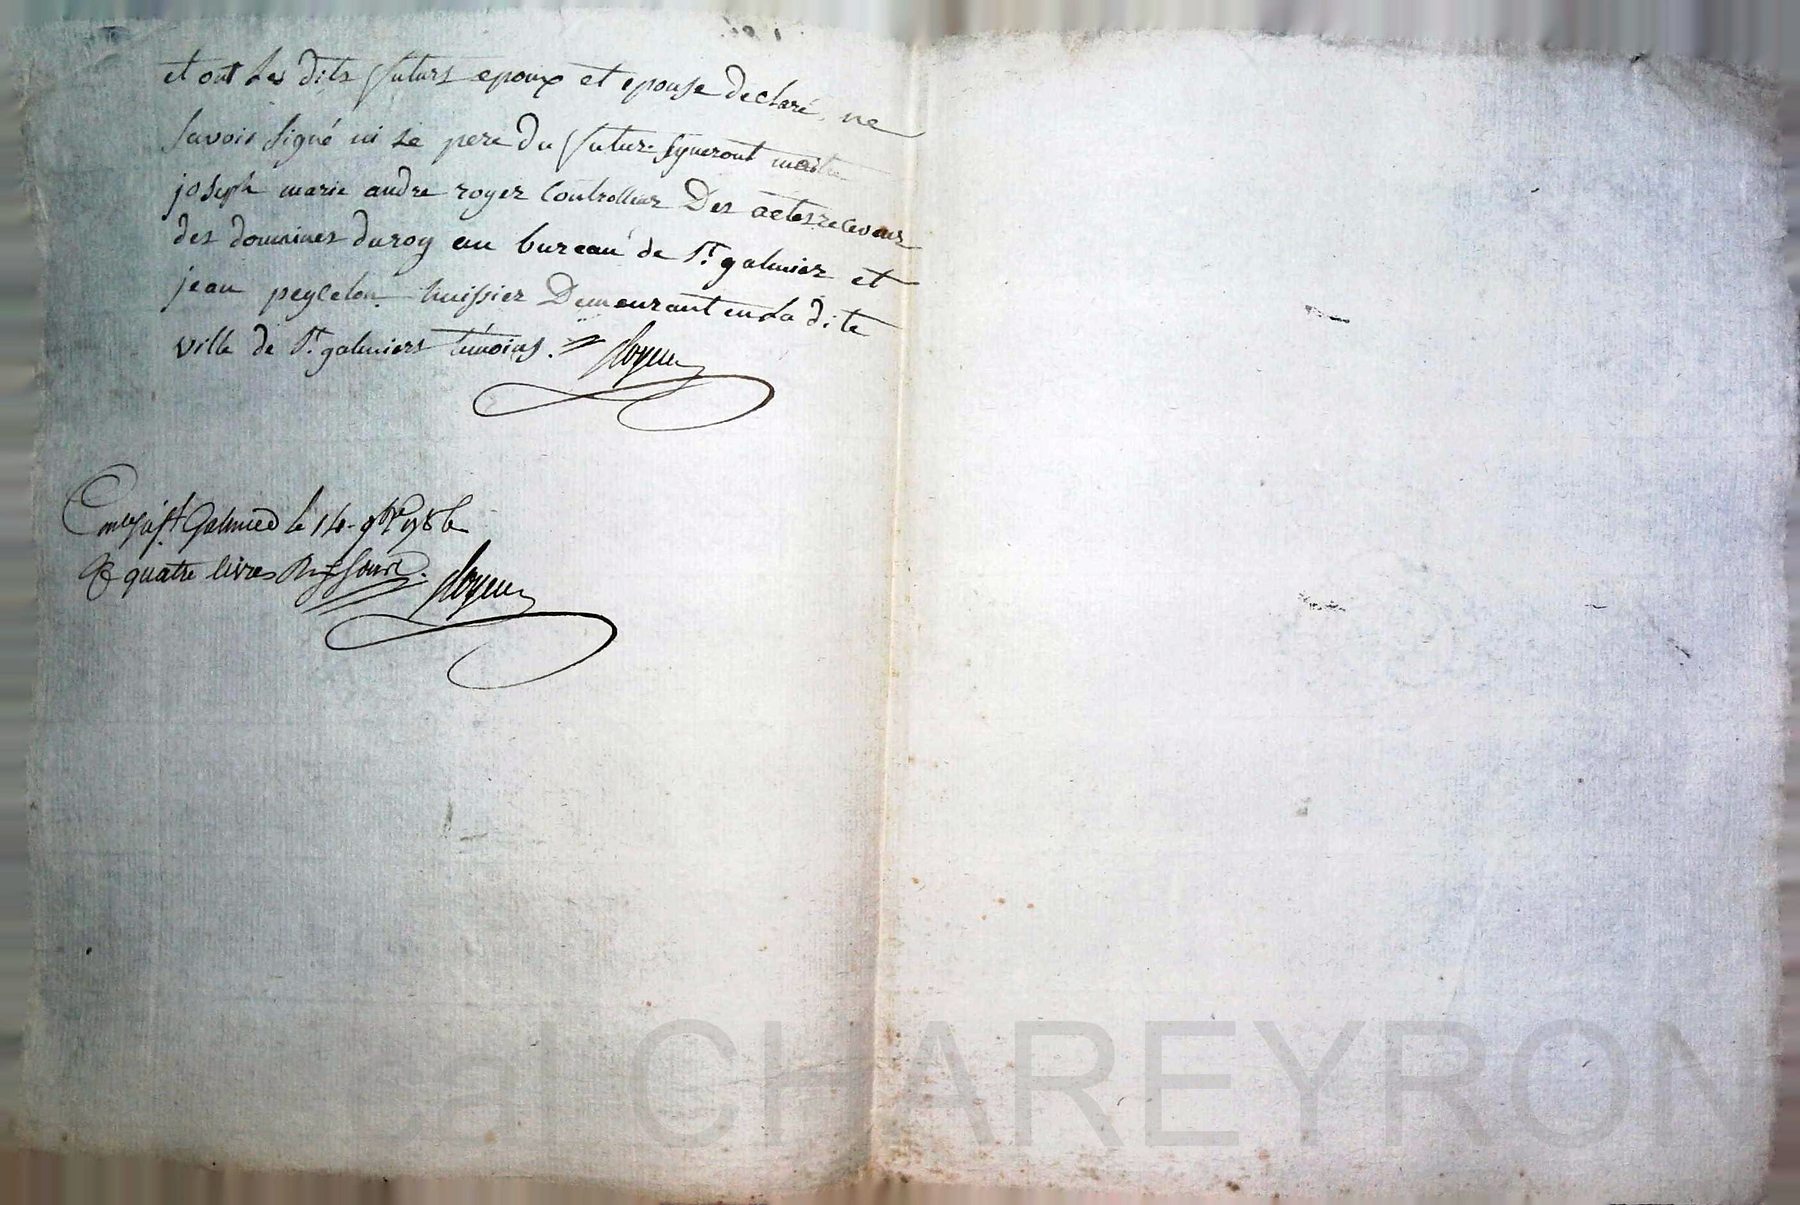 et ont les dits futurs epoux et epouse declaré, ne
savoir signé ni le pere du futur. signeront maitre
joseph marie andre royer Controlleur Des actes receveur
des domaines du roy au bureau de St. galmier et
jean peycelon huissier Demeurant en la dite
ville de St. galmiers témoins. Royer
St Galmier le 14 9bre
quatre livres Royer
cal CHAREYRON